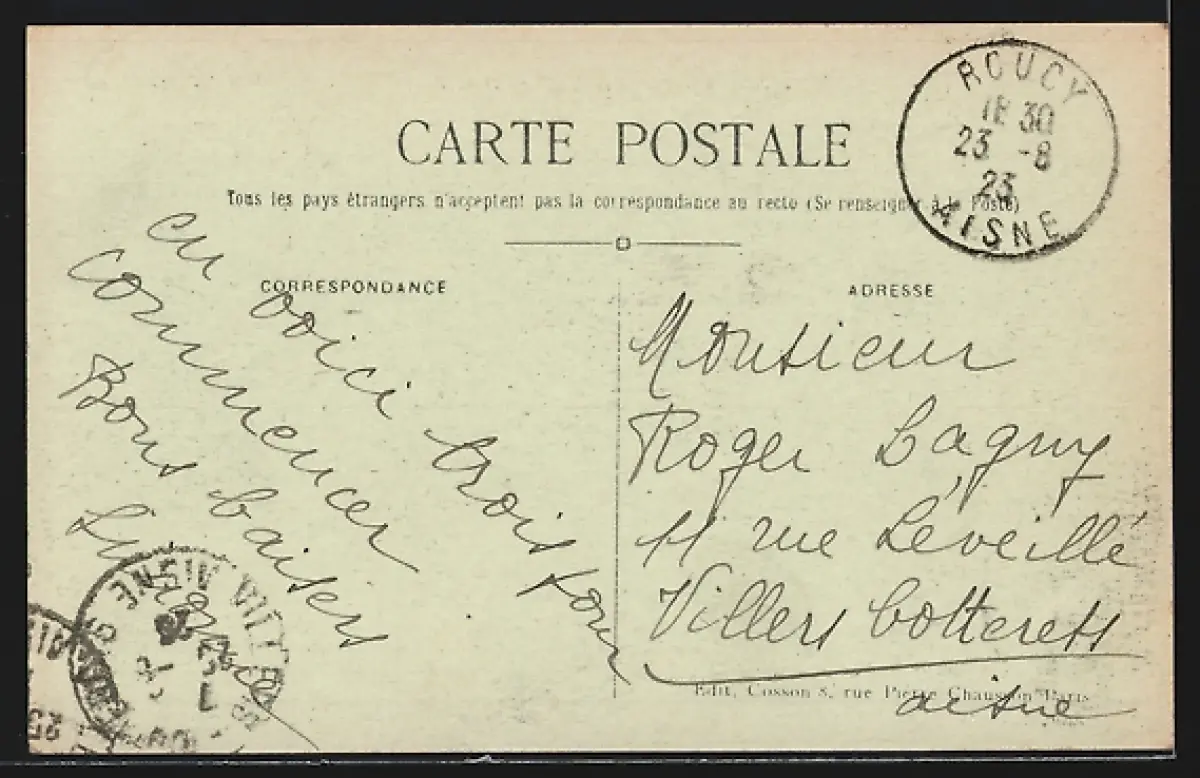 CARTE POSTALE
Tous les pays étrangers n'acceptent pas la correspondance au recto (Se renseigner à la Poste)
CORRESPONDANCE
en voici trois pour
commencer
Bons baisers
ADRESSE
Monsieur
Roger Lagny
11 rue Léveillé
Villers Cotterets
aisne
Edit. Cosson 8, rue Pierre Chausson Paris
ROUCY
18 30
23 -8
23
AISNE
AISNE VILLERS